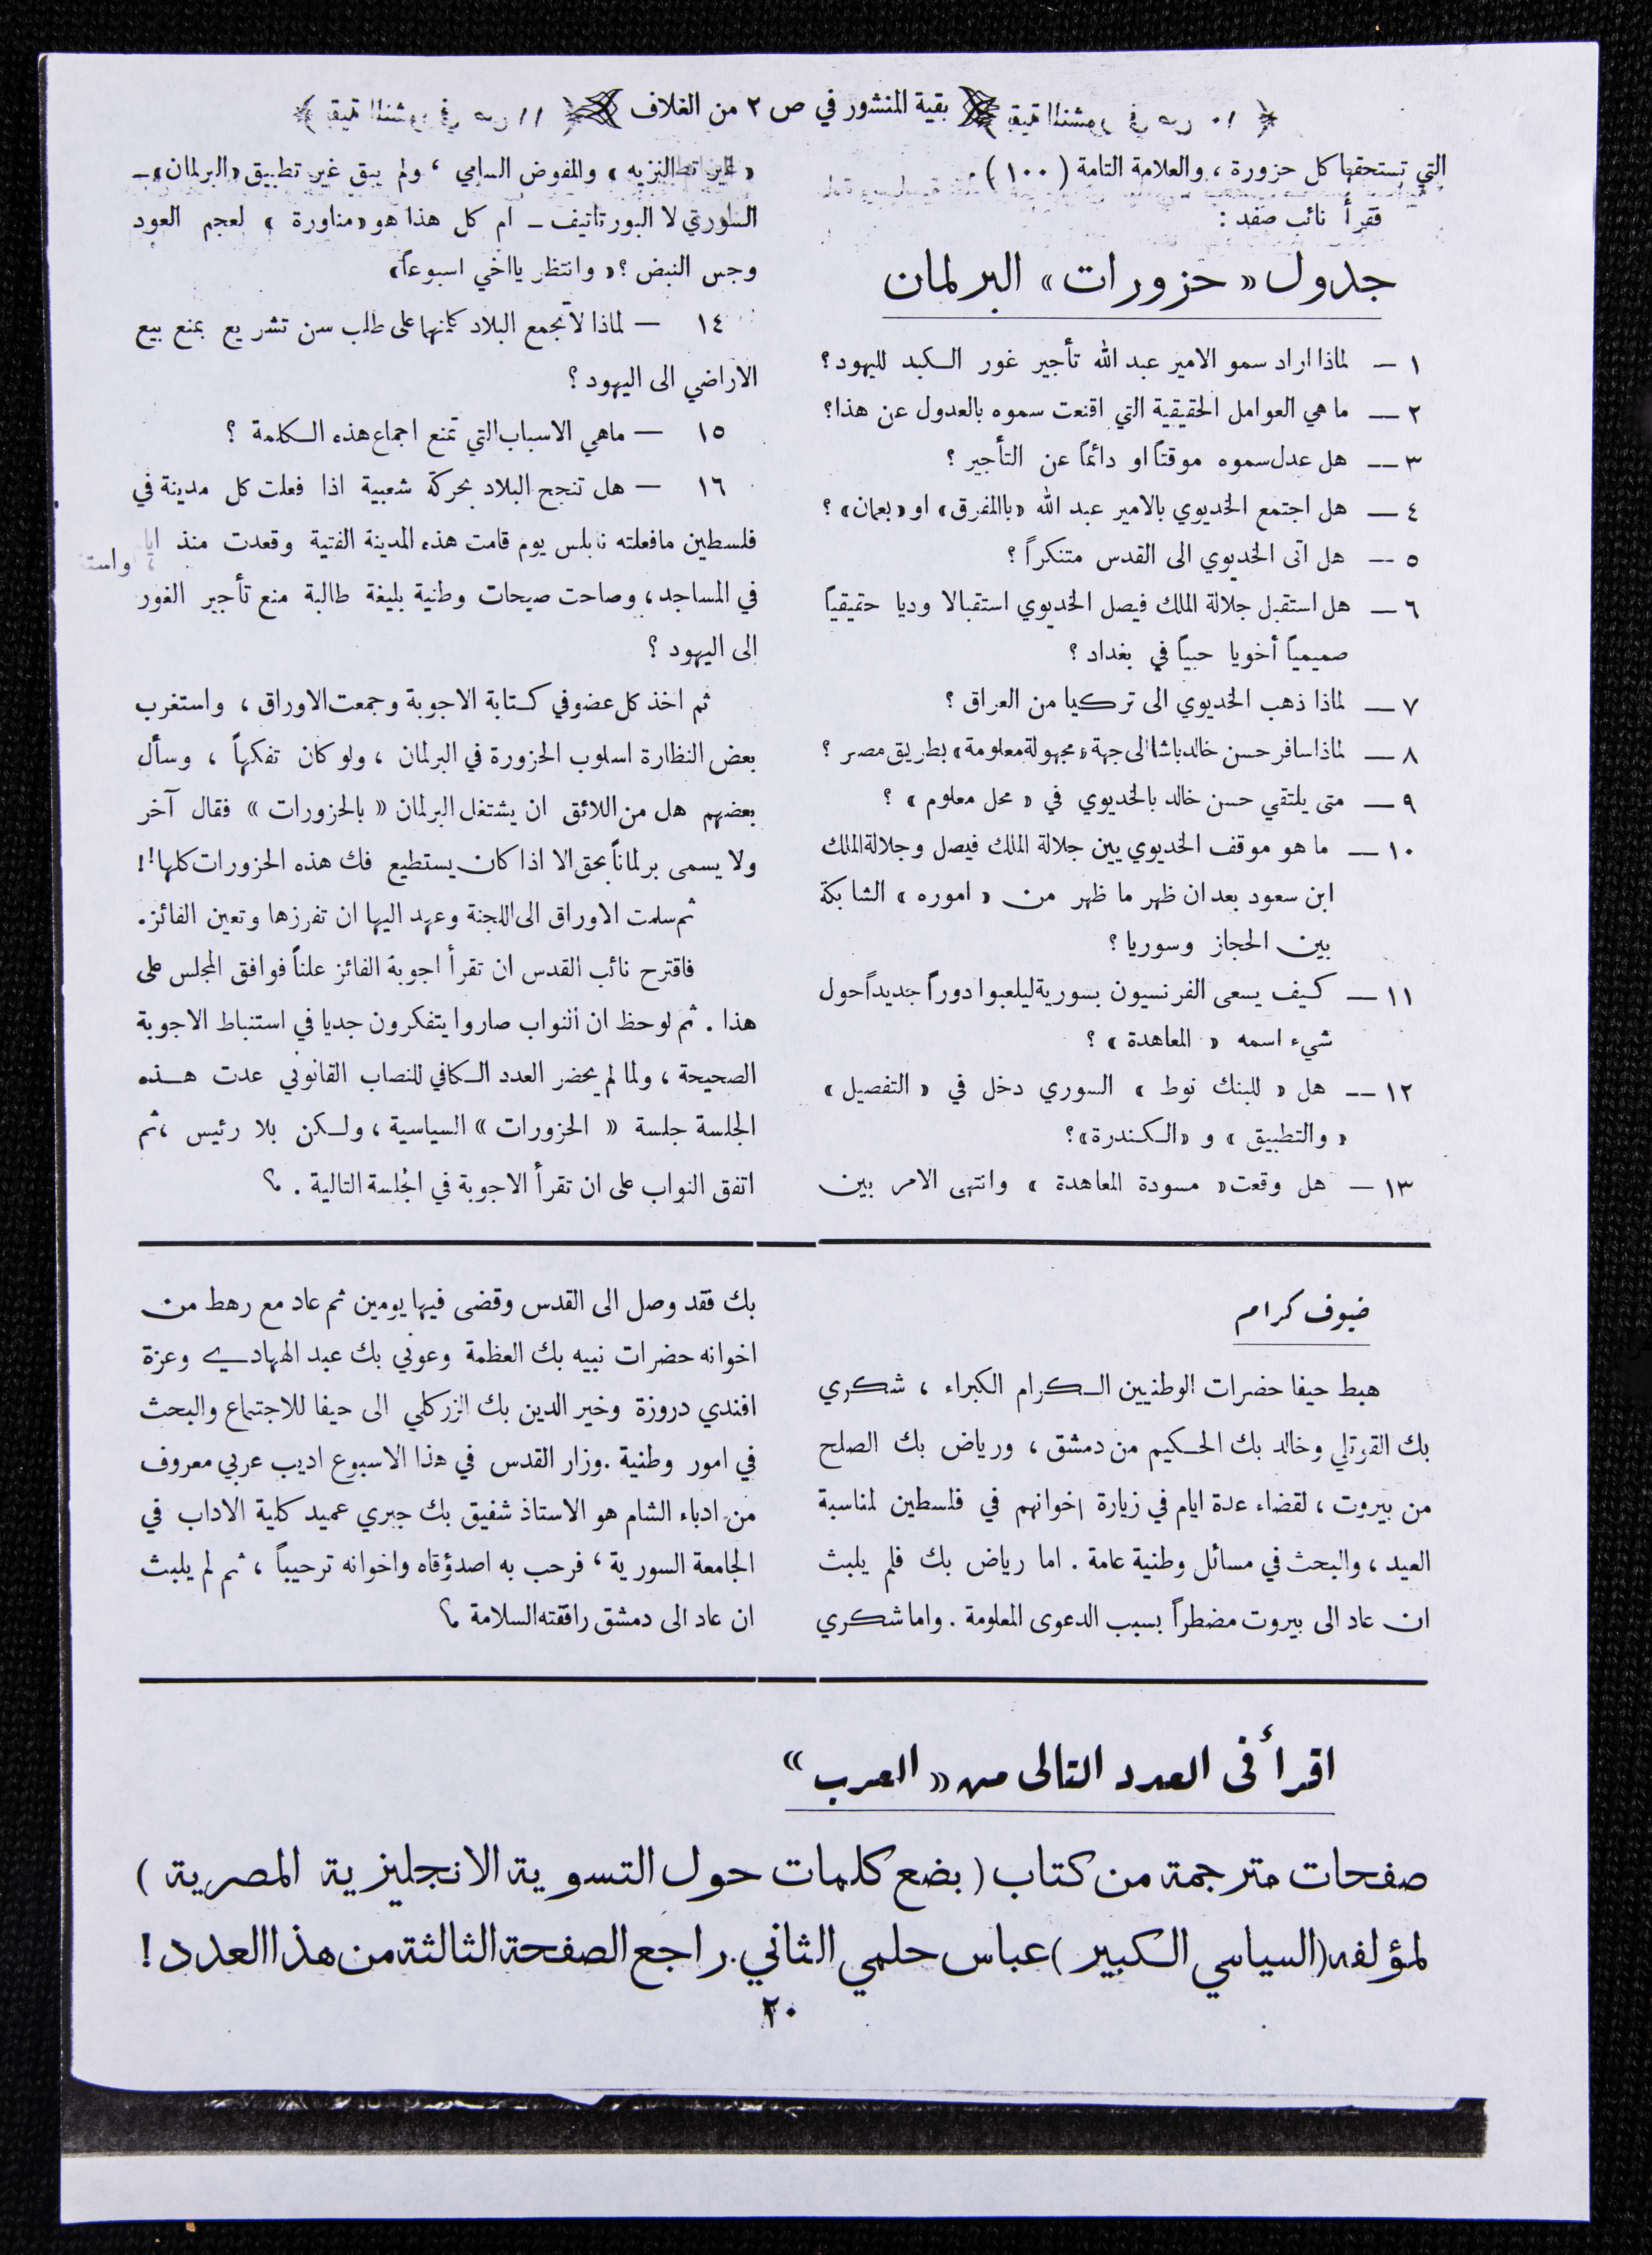 بقية المنشور في ص ٢ من الغلاف
التي تستحقها كل حزورة ، والعلامة التامة ( ١٠٠ ) .
فقرأ نائب صفد :
جدول « حزورات » البرلمان
١ — لماذا اراد سمو الامير عبد الله تأجير غور الكبد لليهود ؟
٢ — ما هي العوامل الحقيقية التي اقنعت سموه بالعدول عن هذا ؟
٣ — هل عدل سموه موقتاً او دائماً عن التأجير ؟
٤ — هل اجتمع الخديوي بالامير عبد الله « باالمفرق » او « بعمان » ؟
٥ — هل اتى الخديوي الى القدس متنكراً ؟
٦ — هل استقبل جلالة الملك فيصل الخديوي استقبالا وديا حقيقياً
صميمياً أخويا حبياً في بغداد ؟
٧ — لماذا ذهب الخديوي الى تركيا من العراق ؟
٨ — لماذا سافر حسن خالد باشا الى جهة « مجهولة معلومة » بطريق مصر ؟
٩ — متى يلتقي حسن خالد بالخديوي في « محل معلوم » ؟
١٠ — ما هو موقف الخديوي بين جلالة الملك فيصل وجلالة الملك
ابن سعود بعد ان ظهر ما ظهر من « اموره » الشابكة
بين الحجاز وسوريا ؟
١١ — كيف يسعى الفرنسيون بسورية ليلعبوا دوراً جديداً حول
شيء اسمه « المعاهدة » ؟
١٢ — هل « للبنك نوط » السوري دخل في « التفصيل »
« والتطبيق » و « الكندرة » ؟
١٣ — هل وقعت « مسودة المعاهدة » وانتهى الامر بين
النزيه » والمفوض السامي ، ولم يبق غير تطبيق « البرلمان » —
السوري لا البورتاتيف — ام كل هذا هو « مناورة » لعجم العود
وجس النبض ؟ « وانتظر يااخي اسبوعاً »
١٤ — لماذا لا تجمع البلاد كلمتها على طلب سن تشريع بمنع بيع
الاراضي الى اليهود ؟
١٥ — ماهي الاسباب التي تمنع اجماع هذه الكلمة ؟
١٦ — هل تنجح البلاد بحركة شعبية اذا فعلت كل مدينة في
فلسطين مافعلته نابلس يوم قامت هذه المدينة الفتية وقعدت منذ ايام
في المساجد ، وصاحت صيحات وطنية بليغة طالبة منع تأجير الغور
الى اليهود ؟
ثم اخذ كل عضو في كتابة الاجوبة وجمعت الاوراق ، واستغرب
بعض النظارة اسلوب الحزورة في البرلمان ، ولو كان تفكهاً ، وسأل
بعضهم هل من اللائق ان يشتغل البرلمان « بالحزورات » فقال آخر
ولا يسمى برلماناً بحق الا اذا كان يستطيع فك هذه الحزورات كلها !!
ثم سلمت الاوراق الى اللجنة وعهد اليها ان تفرزها وتعين الفائز .
فاقترح نائب القدس ان تقرأ اجوبة الفائز علناً فوافق المجلس على
هذا . ثم لوحظ ان النواب صاروا يتفكرون جديا في استنباط الاجوبة
الصحيحة ، ولما لم يحضر العدد الكافي للنصاب القانوني عدت هذه
الجلسة جلسة « الحزورات » السياسية ، ولكن بلا رئيس ، ثم
اتفق النواب على ان تقرأ الاجوبة في الجلسة التالية .
ضيوف كرام
هبط حيفا حضرات الوطنيين الكرام الكبراء ، شكري
بك القوتلي وخالد بك الحكيم من دمشق ، ورياض بك الصلح
من بيروت ، لقضاء عدة ايام في زيارة اخوانهم في فلسطين لمناسبة
العيد ، والبحث في مسائل وطنية عامة . اما رياض بك فلم يلبث
ان عاد الى بيروت مضطراً بسبب الدعوى المعلومة . واما شكري
بك فقد وصل الى القدس وقضى فيها يومين ثم عاد مع رهط من
اخوانه حضرات نبيه بك العظمة وعوني بك عبد الهادي وعزة
افندي دروزة وخير الدين بك الزركلي الى حيفا للاجتماع والبحث
في امور وطنية . وزار القدس في هذا الاسبوع اديب عربي معروف
من ادباء الشام هو الاستاذ شفيق بك جبري عميد كلية الاداب في
الجامعة السورية ، فرحب به اصدؤقاه واخوانه ترحيباً ، ثم لم يلبث
ان عاد الى دمشق رافقته السلامة
اقرأ في العدد التالي من « العرب »
صفحات مترجمة من كتاب ( بضع كلمات حول التسوية الانجليزية المصرية )
لمؤلفه ( السياسي الكبير ) عباس حلمي الثاني . راجع الصفحة الثالثة من هذا العدد !
٢٠